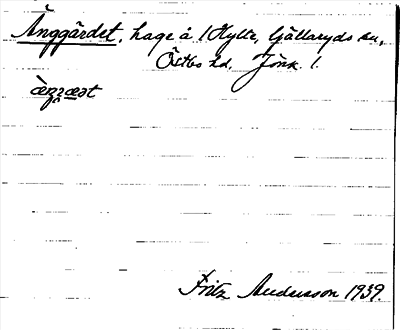 Änggärdet, hage å 1 Hylte, Gällaryds sn,
Östbo hd. Jönk. l.
Fritz Andersson 1939.